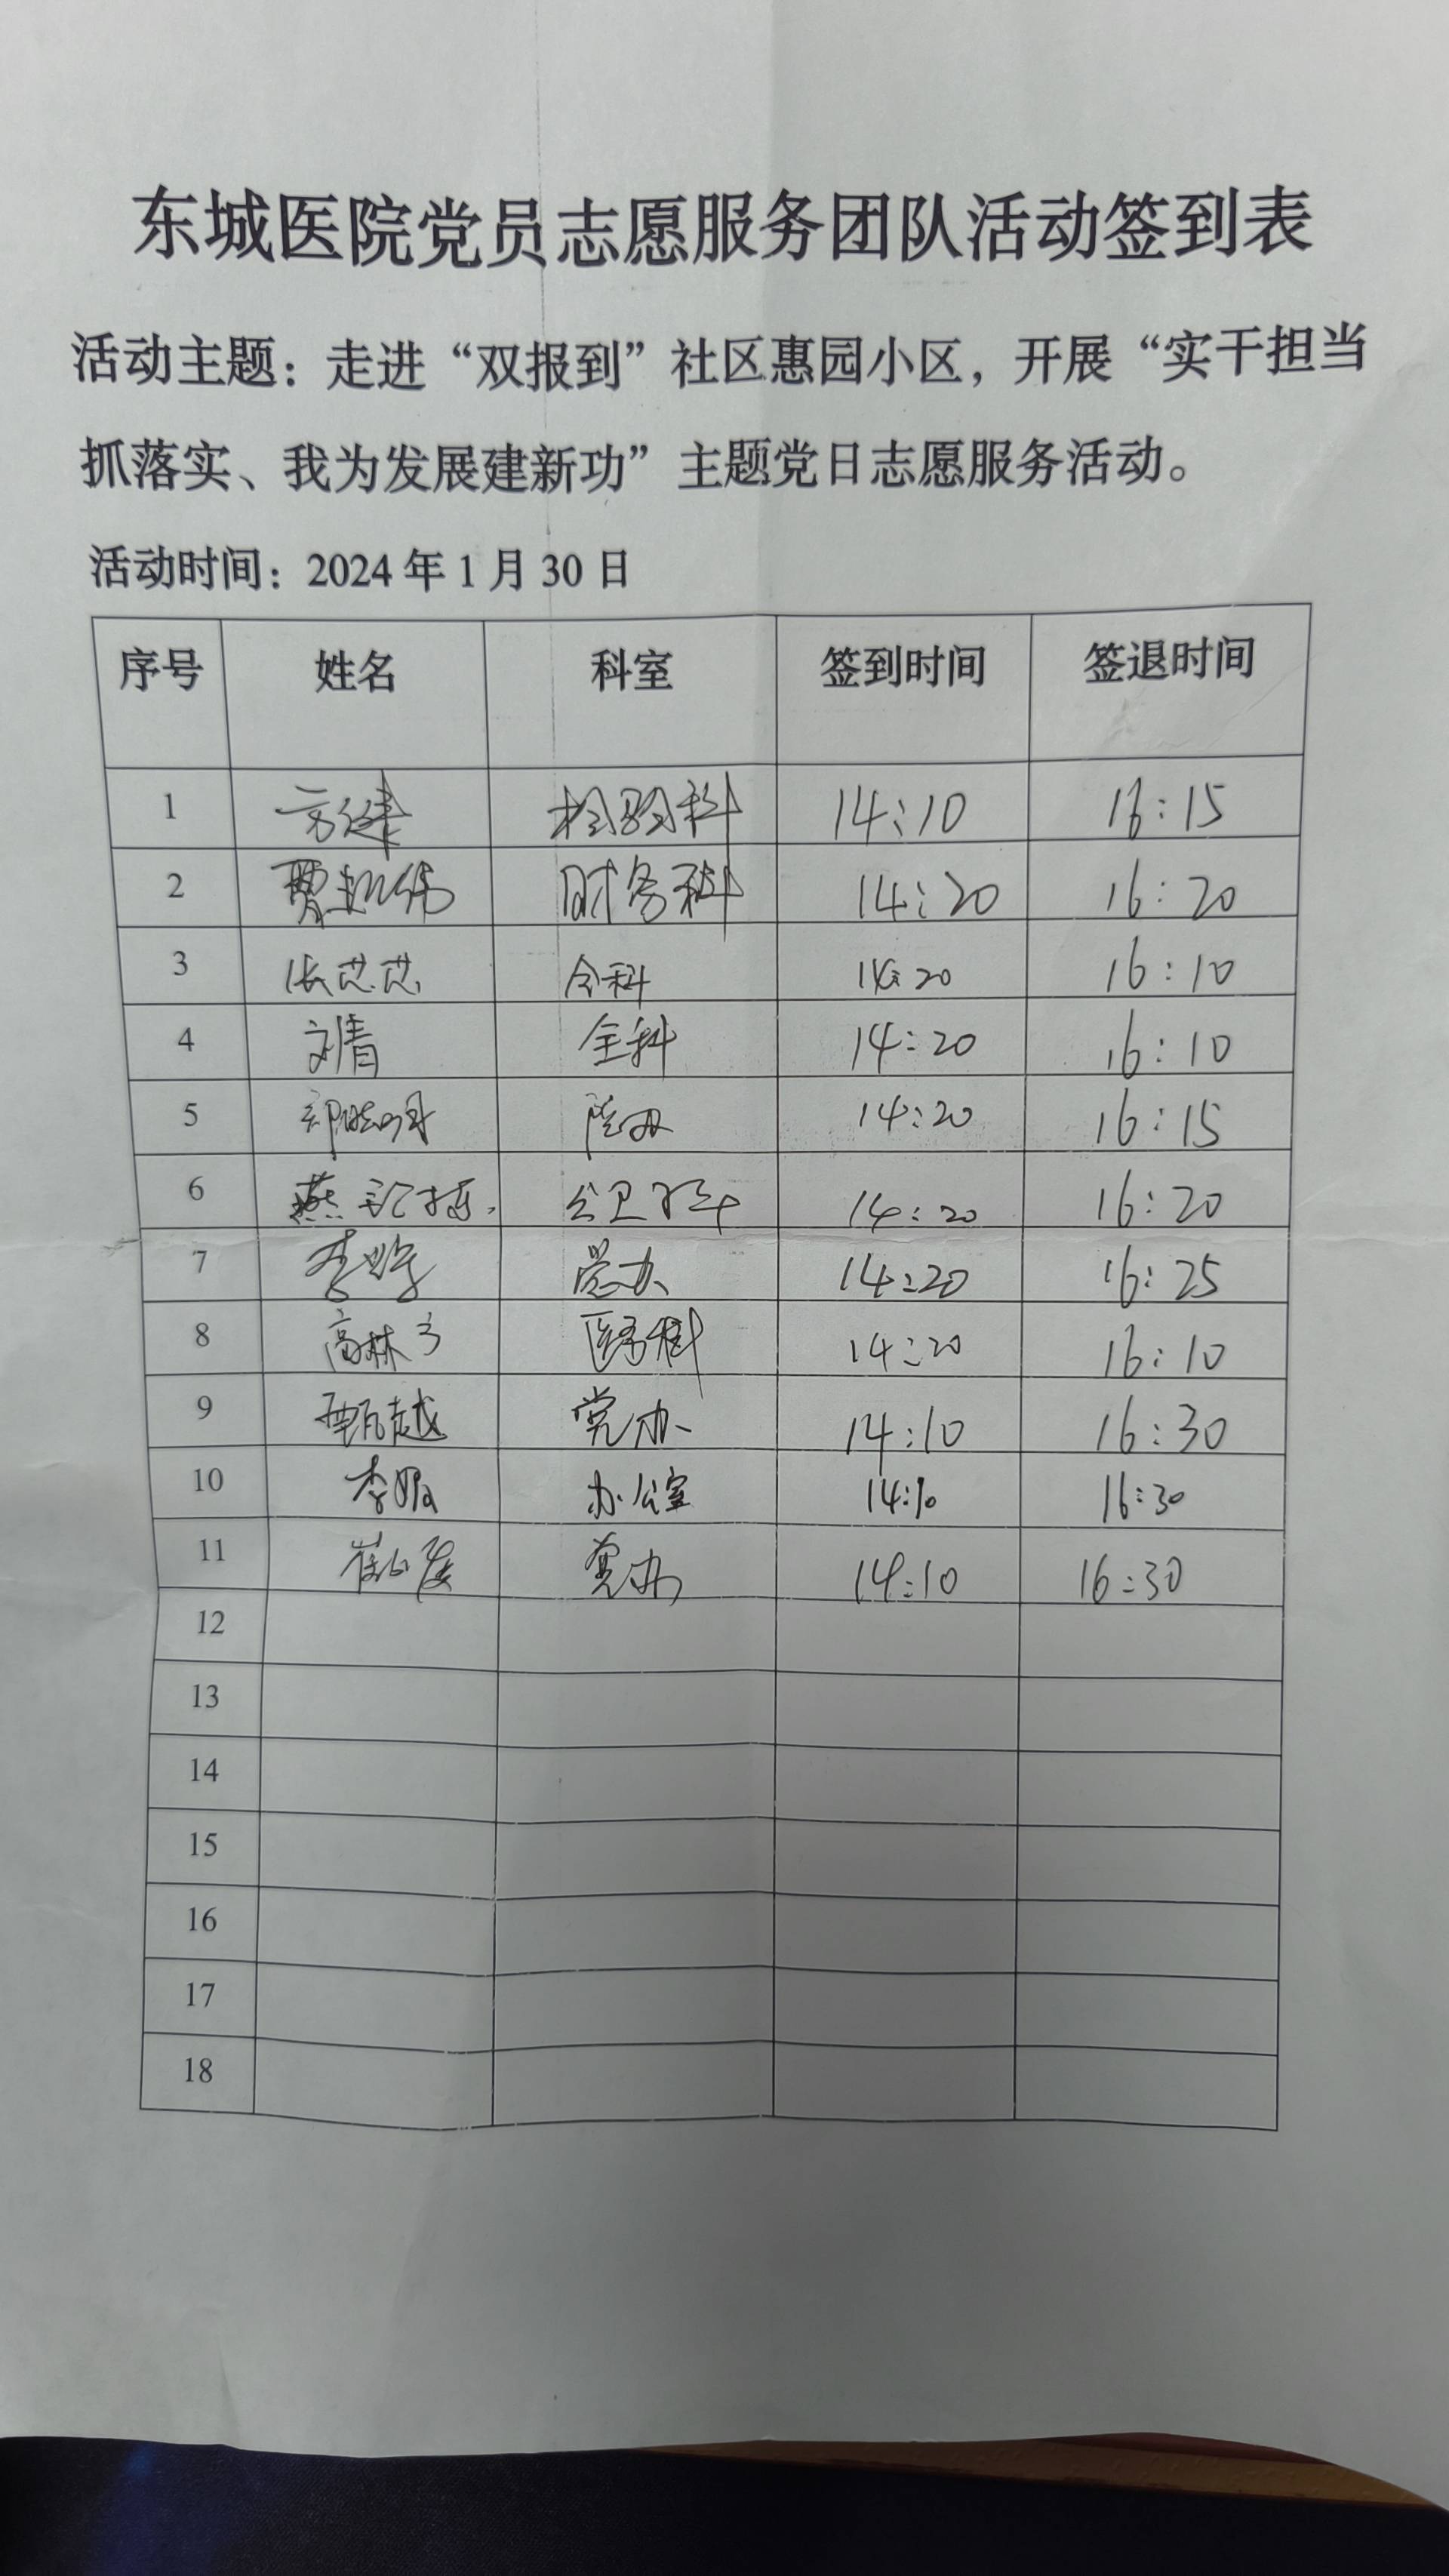 东城医院党员志愿服务团队活动签到表
活动主题：走进“双报到”社区惠园小区，开展“实干担当
抓落实、我为发展建新功”主题党日志愿服务活动。
活动时间：2024年1月30日
序号 姓名 科室 签到时间 签退时间
1 方健 检验科 14:10 16:15
2 财务科 14:20 16:20
3 张芯芯 全科 14:20 16:10
4 全科 14:20 16:10
5 14:20 16:15
6 公卫科 14:20 16:20
7 党办 14:20 16:25
8 医务科 14:20 16:10
9 甄越 党办 14:10 16:30
10 办公室 14:10 16:30
11 党办 14:10 16:30
12
13
14
15
16
17
18